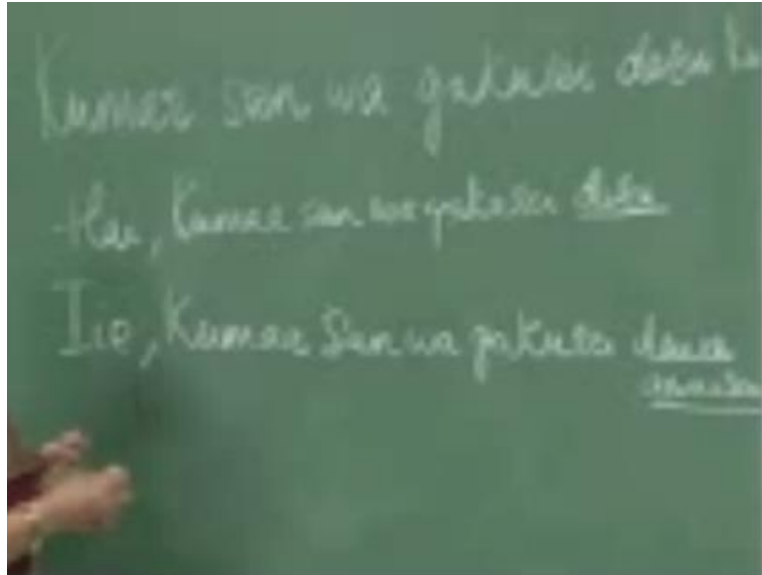 Kumar san wa gakusei desu
Hai, Kumar san wa gakusei desu
Iie, Kumar San wa gakusei